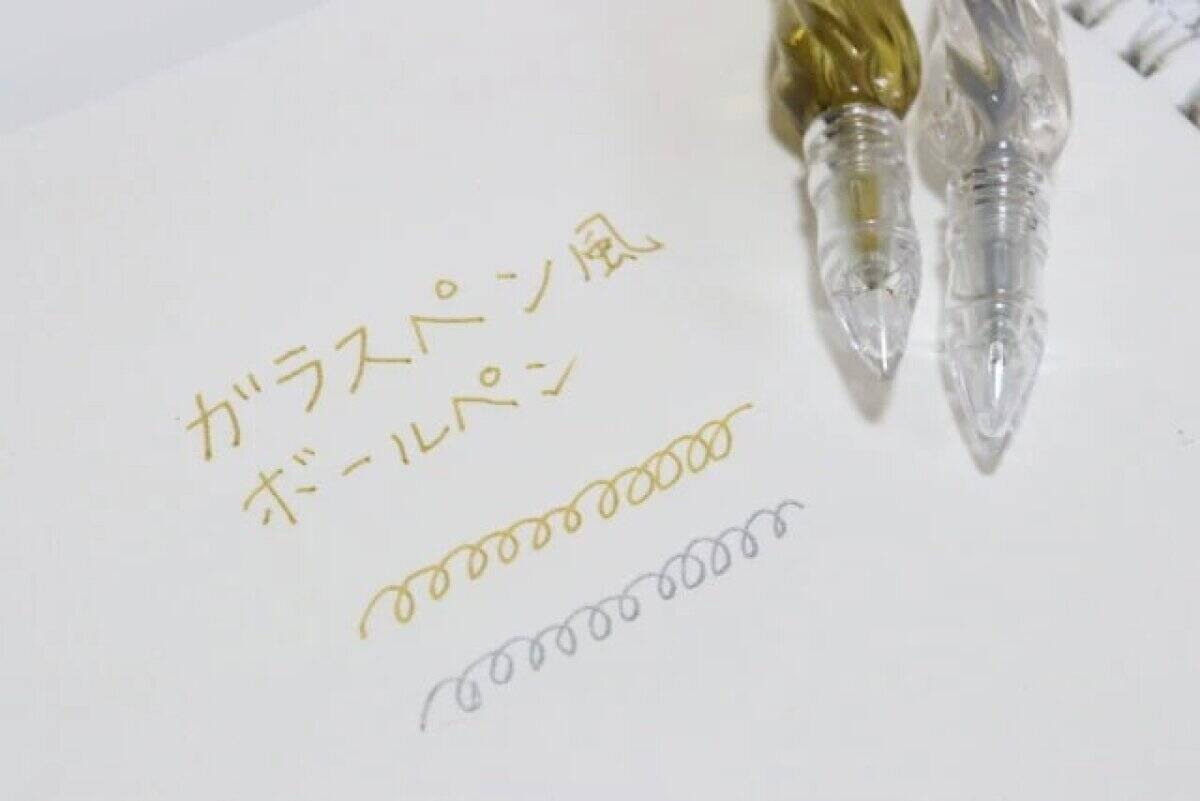 ガラスペン風
ボールペン